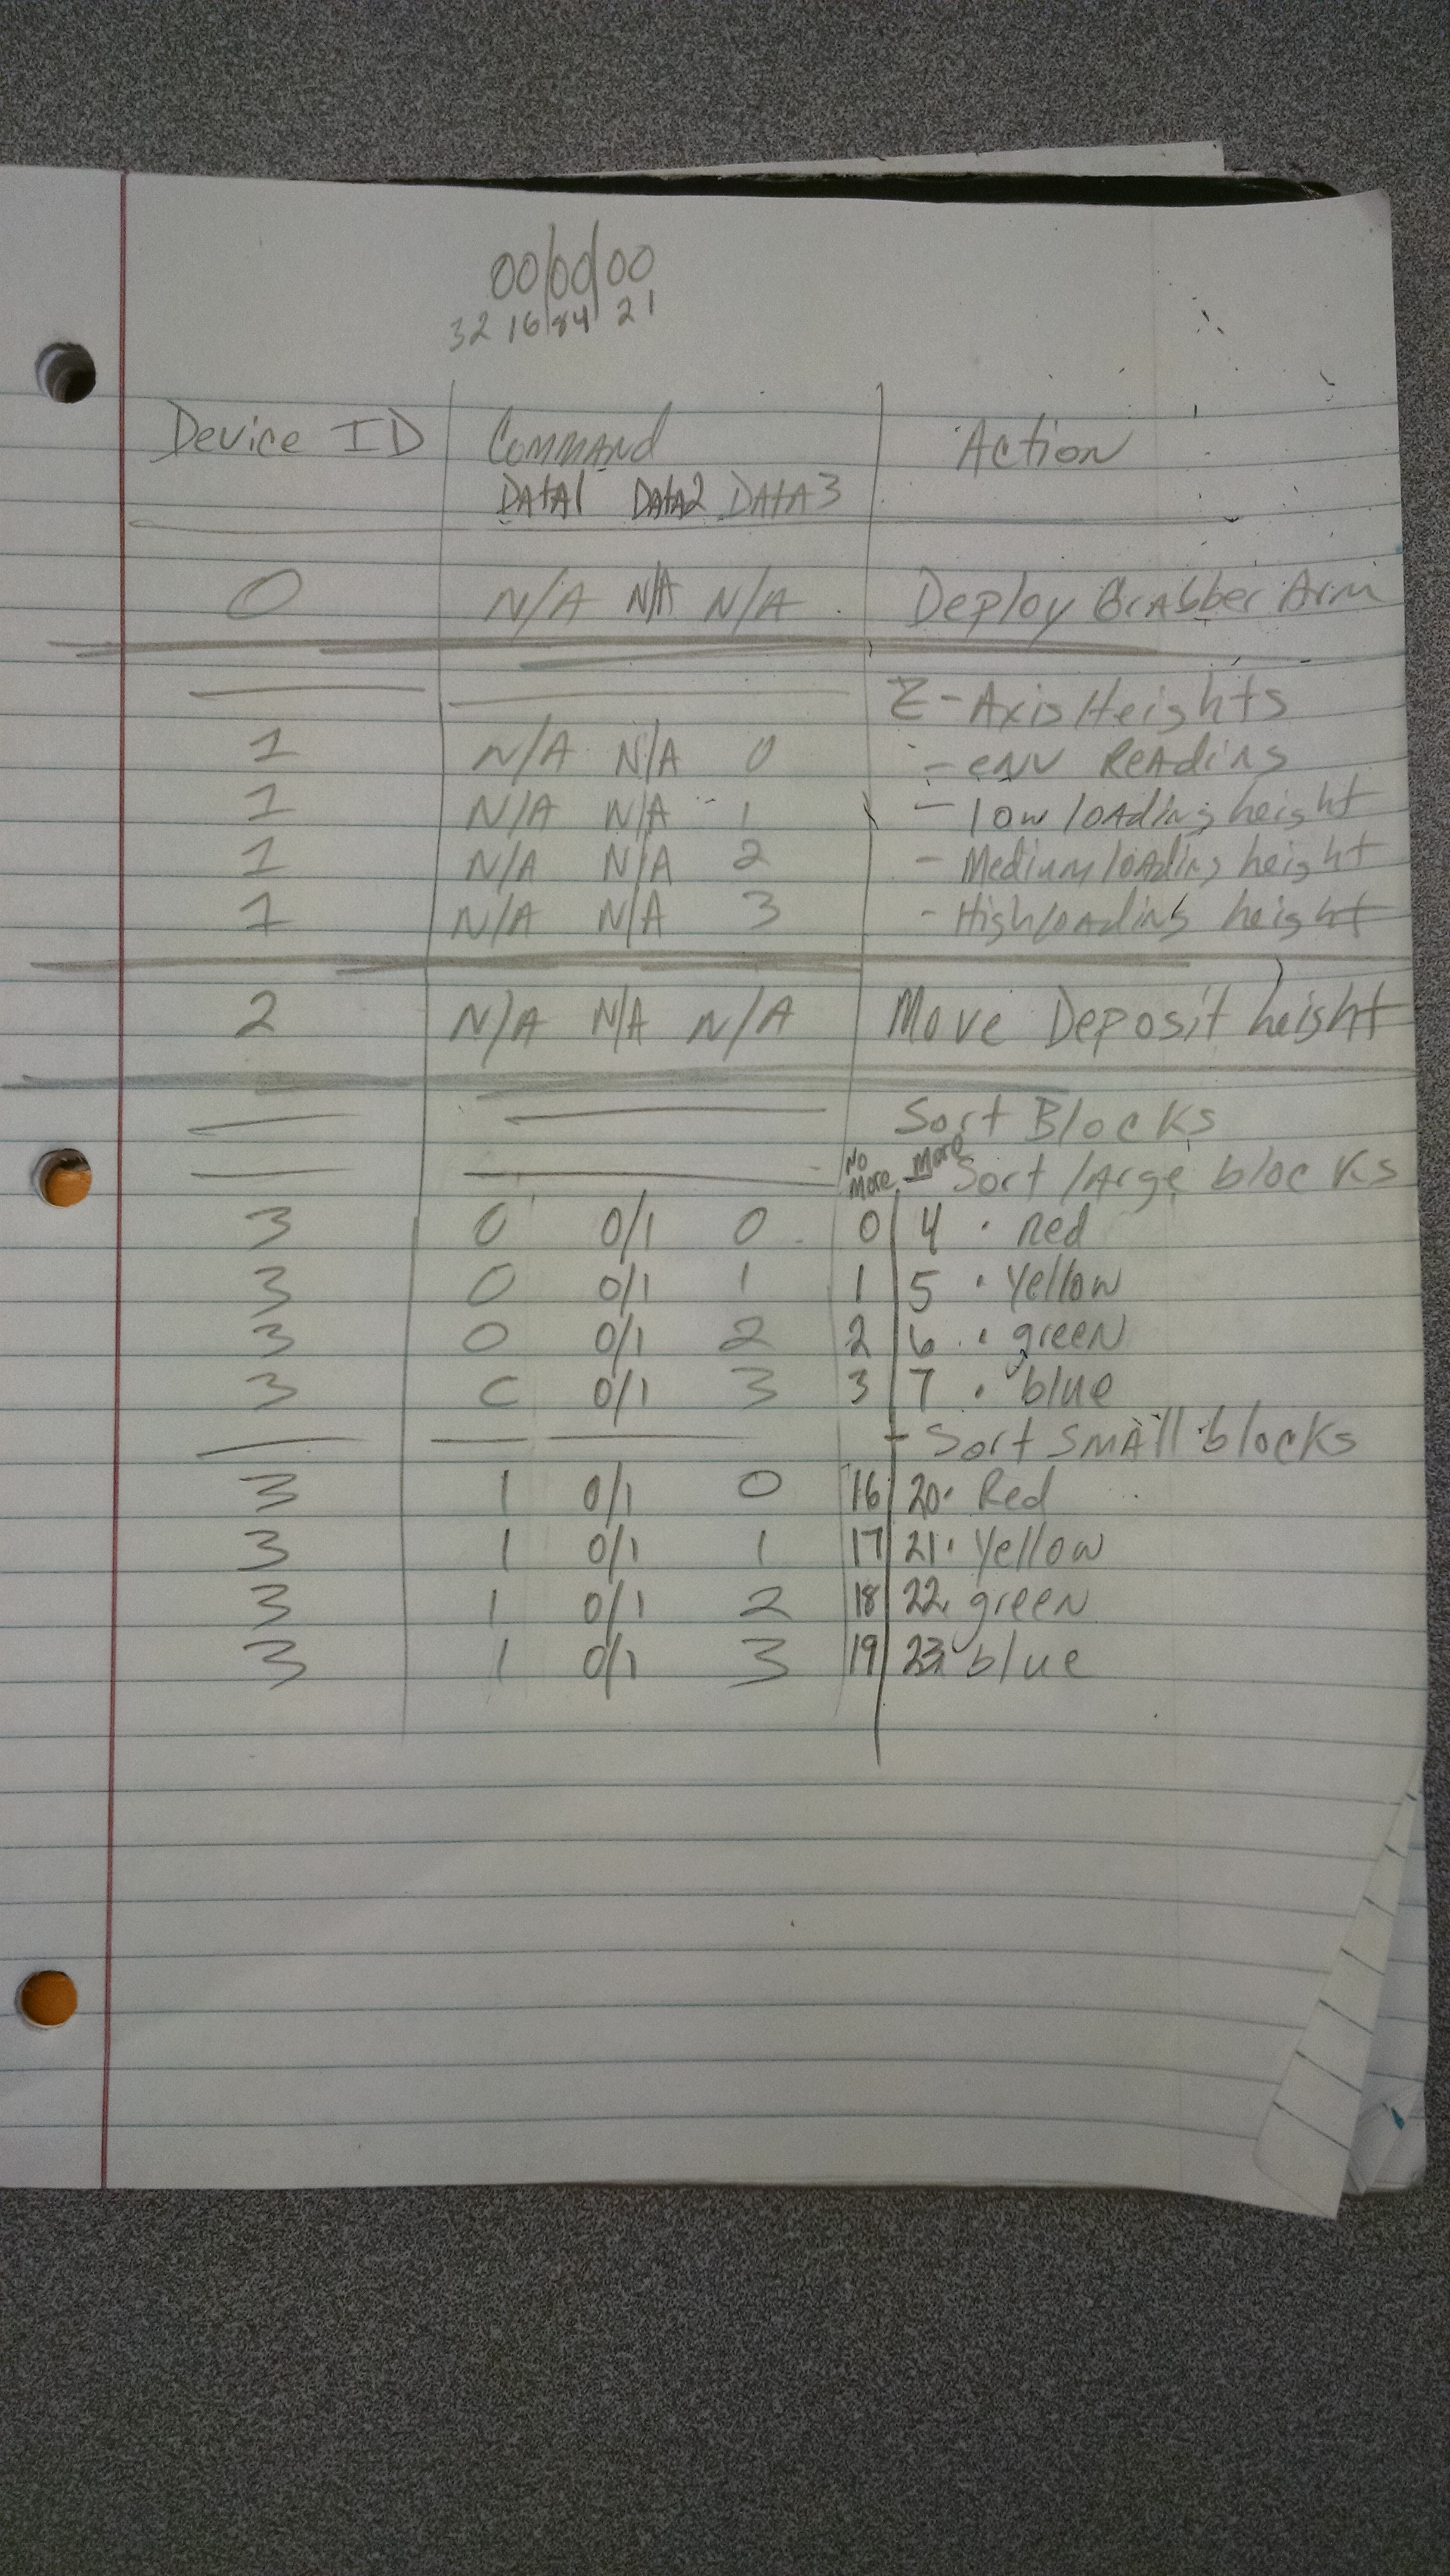 00|00|00
32 16|84| 2 1
Device ID Command Action
DATA1 DATA2 DATA3
0 N/A N/A N/A Deploy Grabber Arm
Z-Axis Heights
1 N/A N/A 0 - ENV Reading
1 N/A N/A 1 - low loading height
1 N/A N/A 2 - Medium loading height
1 N/A N/A 3 - High loading height
2 N/A N/A N/A Move Deposit height
Sort Blocks
No More More Sort large blocks
3 0 0/1 0 0 4 · Red
3 0 0/1 1 1 5 · Yellow
3 0 0/1 2 2 6 · green
3 0 0/1 3 3 7 · blue
- Sort SMAll blocks
3 1 0/1 0 16 20 · Red
3 1 0/1 1 17 21 · Yellow
3 1 0/1 2 18 22 · green
3 1 0/1 3 19 23 · blue